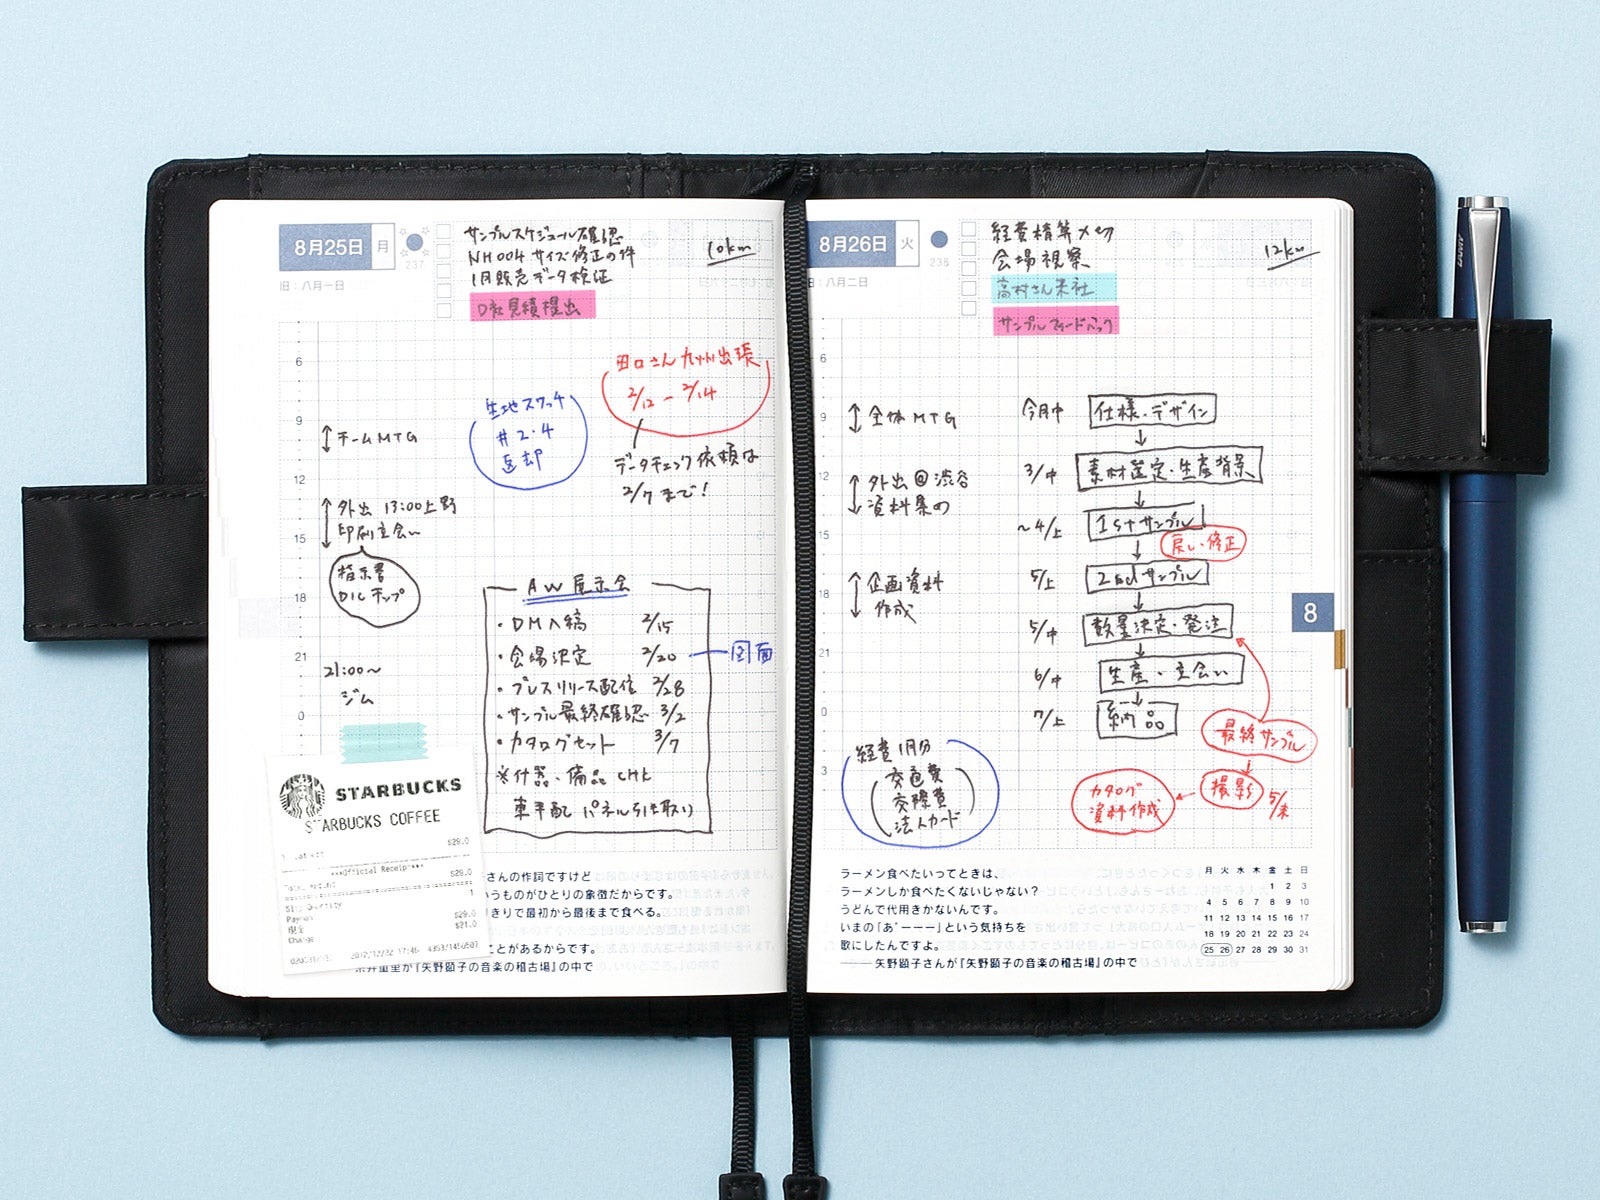 8月25日 月
237
旧：八月一日
サンプルスケジュール確認
NH004 サイズ修正の件
1月販売データ検証
D社見積提出
10km
6
9
12
15
18
21
0
チームMTG
外出 13:00上野
印刷立会い
指示書
DICチップ
21:00～
ジム
生地スワッチ
#2・4
返却
田口さん九州出張
2/12 － 2/14
データチェック依頼は
2/7まで！
AW展示会
・DM入稿 2/15
・会場決定 2/20
図面
・プレスリリース配信 2/28
・サンプル最終確認 3/2
・カタログセット 3/7
※什器・備品 CHK
車手配 パネル引き取り
STARBUCKS
STARBUCKS COFFEE
$29.0
***Official Receipt***
$29.0
1
$29.0
現金 $21.0
Change
さんの作詞ですけど
うものがひとりの象徴だからです。
きりで最初から最後まで食べる。
ことがあるからです。
糸井重里が『矢野顕子の音楽の稽古場』の中で
8月26日 火
238
旧：八月二日
経費精算〆切
会場視察
高村さん来社
サンプルフィードバック
12km
6
9
12
15
18
21
0
3
全体MTG
外出@渋谷
資料集め
企画資料
作成
今月中 仕様・デザイン
3/中 素材選定・生産背景
～4/上 1stサンプル
戻し・修正
5/上 2ndサンプル
5/中 数量決定・発注
6/中 生産・立会い
7/上 納品
最終サンプル
撮影 5/末
カタログ
資料作成
経費1月分
交通費
交際費
法人カード
8
ラーメン食べたいってときは、
ラーメンしか食べたくないじゃない？
うどんで代用きかないんです。
いまの「あ゛ーーー」という気持ちを
歌にしたんですよ。
――矢野顕子さんが『矢野顕子の音楽の稽古場』の中で
月 火 水 木 金 土 日
1 2 3
4 5 6 7 8 9 10
11 12 13 14 15 16 17
18 19 20 21 22 23 24
25 26 27 28 29 30 31
LAMY